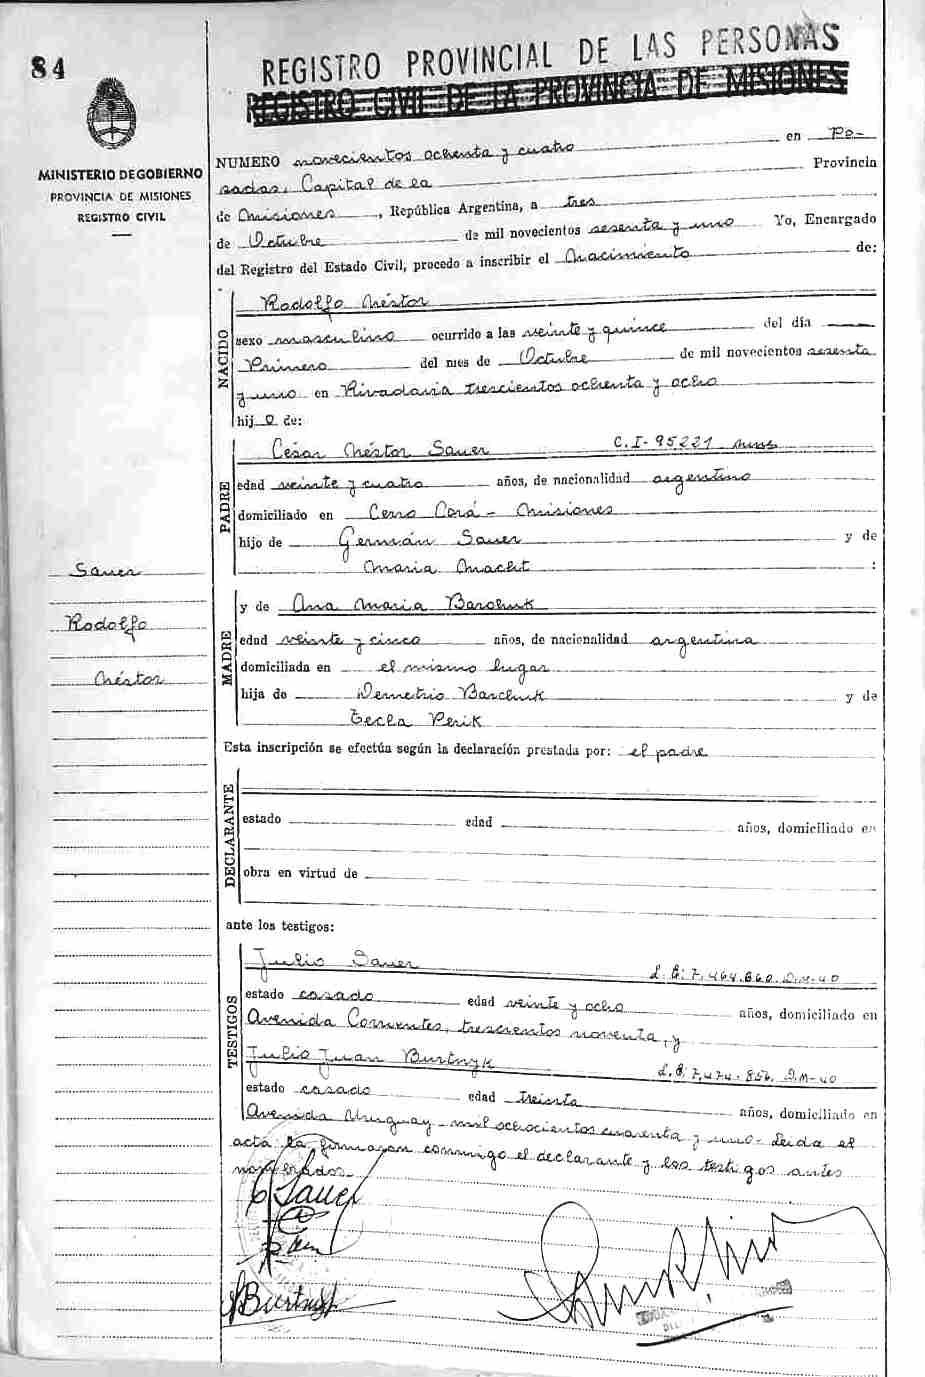 84
REGISTRO PROVINCIAL DE LAS PERSONAS
REGISTRO CIVIL DE LA PROVINCIA DE MISIONES
MINISTERIO DE GOBIERNO
PROVINCIA DE MISIONES
REGISTRO CIVIL
NUMERO novecientos ochenta y cuatro en Po-
sadas, Capital de la Provincia
de Misiones, República Argentina, a tres
de Octubre de mil novecientos sesenta y uno Yo, Encargado
del Registro del Estado Civil, procedo a inscribir el Nacimiento de:
NACIDO
Rodolfo Néstor
sexo masculino ocurrido a las veinte y quince del día
Primero del mes de Octubre de mil novecientos sesenta
y uno en Rivadavia trescientos ochenta y ocho
hijo de:
PADRE
César Néstor Sauer C.I-95221 mnes
edad veinte y cuatro años, de nacionalidad argentino
domiciliado en Cerro Corá - Misiones
hijo de Germán Sauer y de
Maria Macht :
MADRE
y de Ana Maria Barchuk
edad veinte y cinco años, de nacionalidad argentina
domiciliada en el mismo lugar
hija de Demetrio Barchuk y de
Tecla Perik
Sauer
Rodolfo
Néstor
Esta inscripción se efectúa según la declaración prestada por: el padre
DECLARANTE
estado edad años, domiciliado en
obra en virtud de
ante los testigos:
TESTIGOS
Julio Sauer L.E: 7.464.860 D.M-40
estado casado edad veinte y ocho años, domiciliado en
Avenida Corrientes, trescientos noventa, y
Julio Juan Burtnyk L.E: 7.474.856. D.M-40
estado casado edad treinta años, domiciliado en
Avenida Uruguay - mil ochocientos cuarenta y uno - Leida el
acta la firmaron conmigo el declarante y los testigos antes
nombrados.
Sauer
Burtnyk